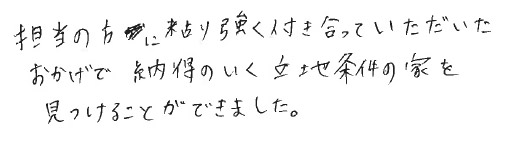 担当の方に粘り強く付き合っていただいた
おかげで 納得のいく 立地条件の家を
見つけることができました。